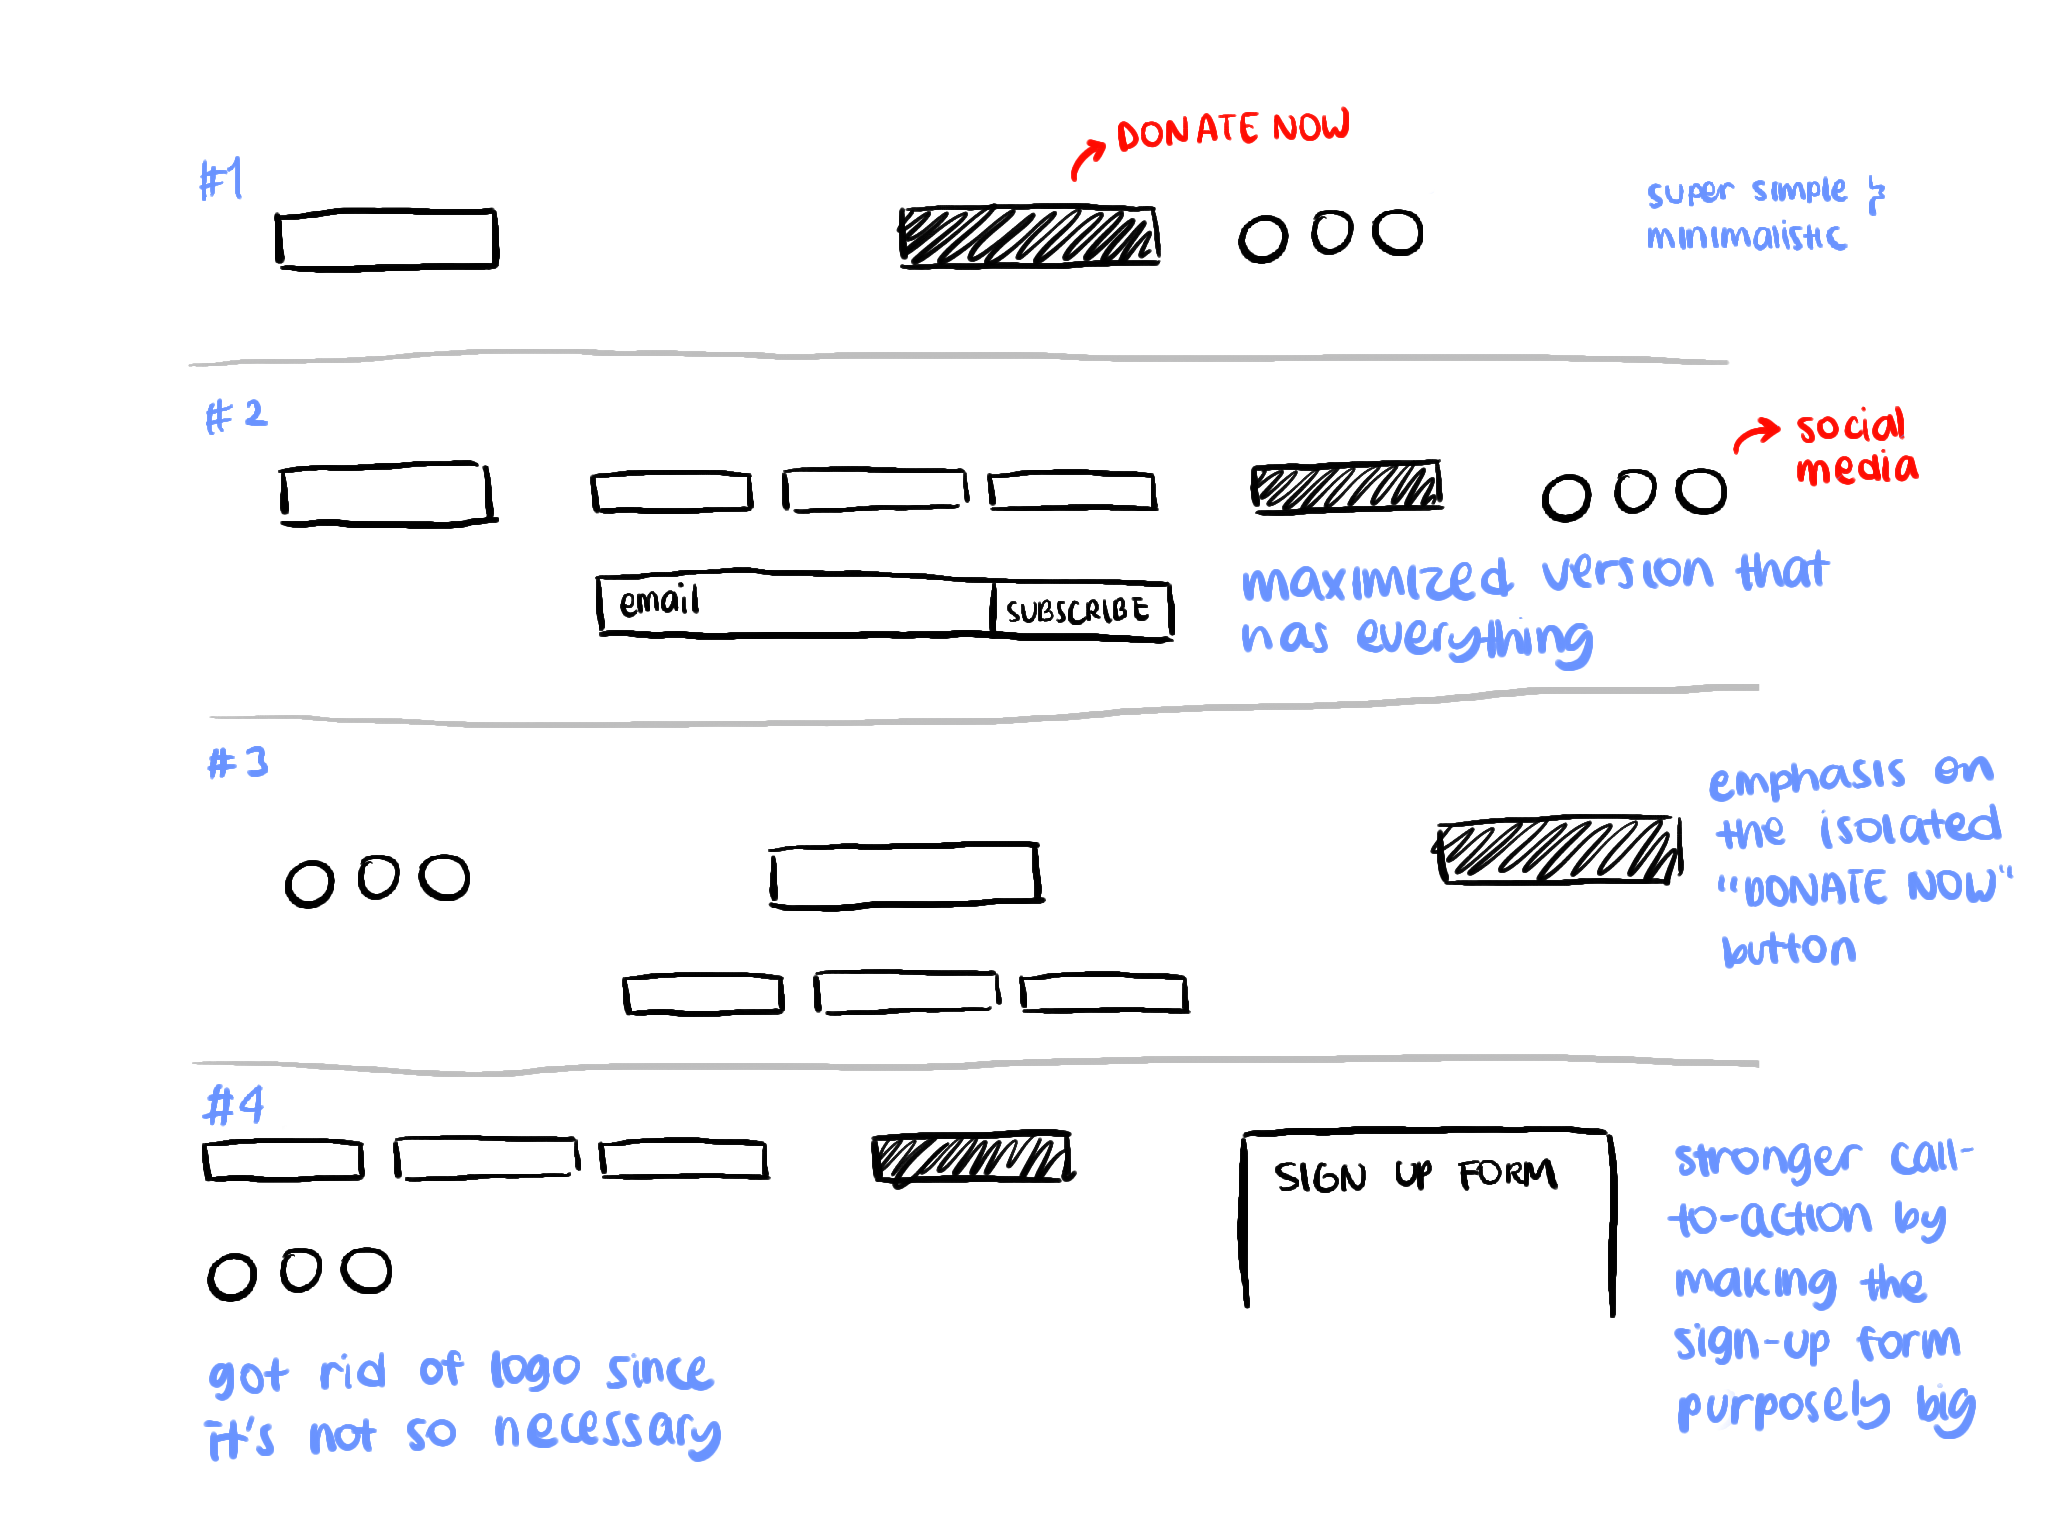 #1
DONATE NOW
super simple &
minimalistic
#2
social
media
email
SUBSCRIBE
maximized version that
has everything
#3
emphasis on
the isolated
"DONATE NOW"
button
#4
SIGN UP FORM
stronger call-
to-action by
making the
sign-up form
purposely big
got rid of logo since
it's not so necessary